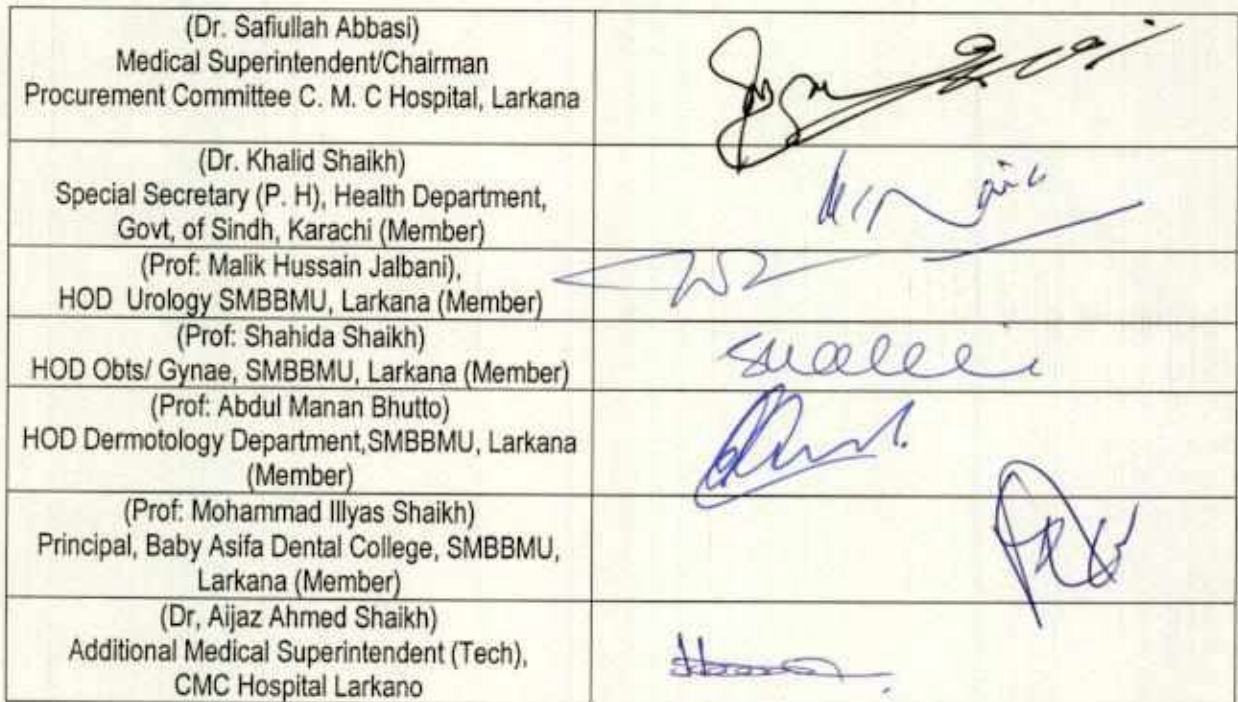 (Dr. Safiullah Abbasi)
Medical Superintendent/Chairman
Procurement Committee C. M. C Hospital, Larkana
(Dr. Khalid Shaikh)
Special Secretary (P. H), Health Department,
Govt, of Sindh, Karachi (Member)
(Prof: Malik Hussain Jalbani),
HOD Urology SMBBMU, Larkana (Member)
(Prof: Shahida Shaikh)
HOD Obts/ Gynae, SMBBMU, Larkana (Member)
(Prof: Abdul Manan Bhutto)
HOD Dermotology Department,SMBBMU, Larkana
(Member)
(Prof: Mohammad Illyas Shaikh)
Principal, Baby Asifa Dental College, SMBBMU,
Larkana (Member)
(Dr, Aijaz Ahmed Shaikh)
Additional Medical Superintendent (Tech),
CMC Hospital Larkano